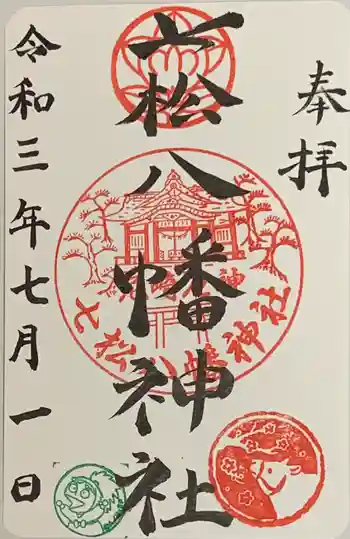 奉拝
七松八幡神社
令和三年七月一日
七松八幡神社